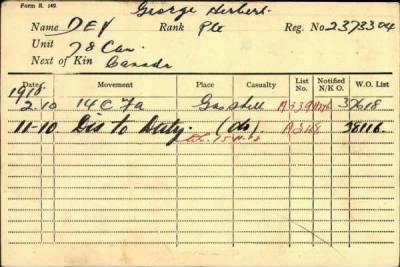 Form R. 149.
George Herbert.
Name DEY Rank Pte Reg. No. 2378304
Unit 78 Can.
Next of Kin Canada
Date Movement Place Casualty List No. Notified N/K O. W.O. List
1918
2-10 14 C Fa Gas Shell A339 37618
11-10 Dis to Duty. (do). A3168 38116.